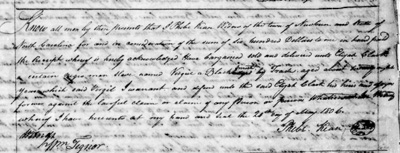 Know all men by these presents that I Phebe Kean Widow of the town of Newbern and State of
North Carolina for and in consideration of the sum of six hundred Dollars to me in hand paid
the Receipt whereof is hereby acknowledged Have bargained sold and delivered unto Elijah Clark
a certain negro man slave named Virgil a Blacksmith by trade aged
Years which said Virgil I warrant and defend unto the said Elijah Clark his heirs and assigns
forever against the lawful claim or claims of any person or persons whatsoever In testimony
whereof I have hereunto set my hand and seal the 28th day of May 1806.
Phebe Kean
Witness
Wm Tignor